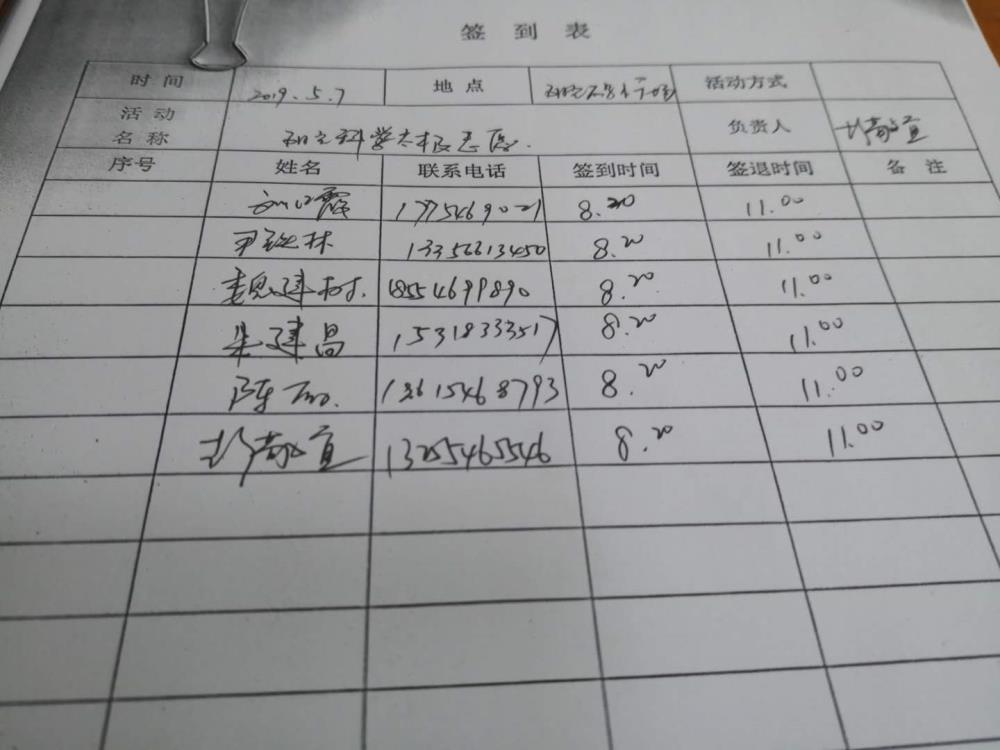 签到表
时间 2019.5.7 地点 活动方式
活动
名称 科学 志愿. 负责人 敬宣
序号 姓名 联系电话 签到时间 签退时间 备注
霞 8.20 11.00
尹 林 13356613450 8.20 11.00
魏建树. 18554699890 8.20 11.00
朱建昌 15318333517 8.20 11.00
陈 13615468793 8.20 11.00
敬宣 13255465546 8.20 11.00